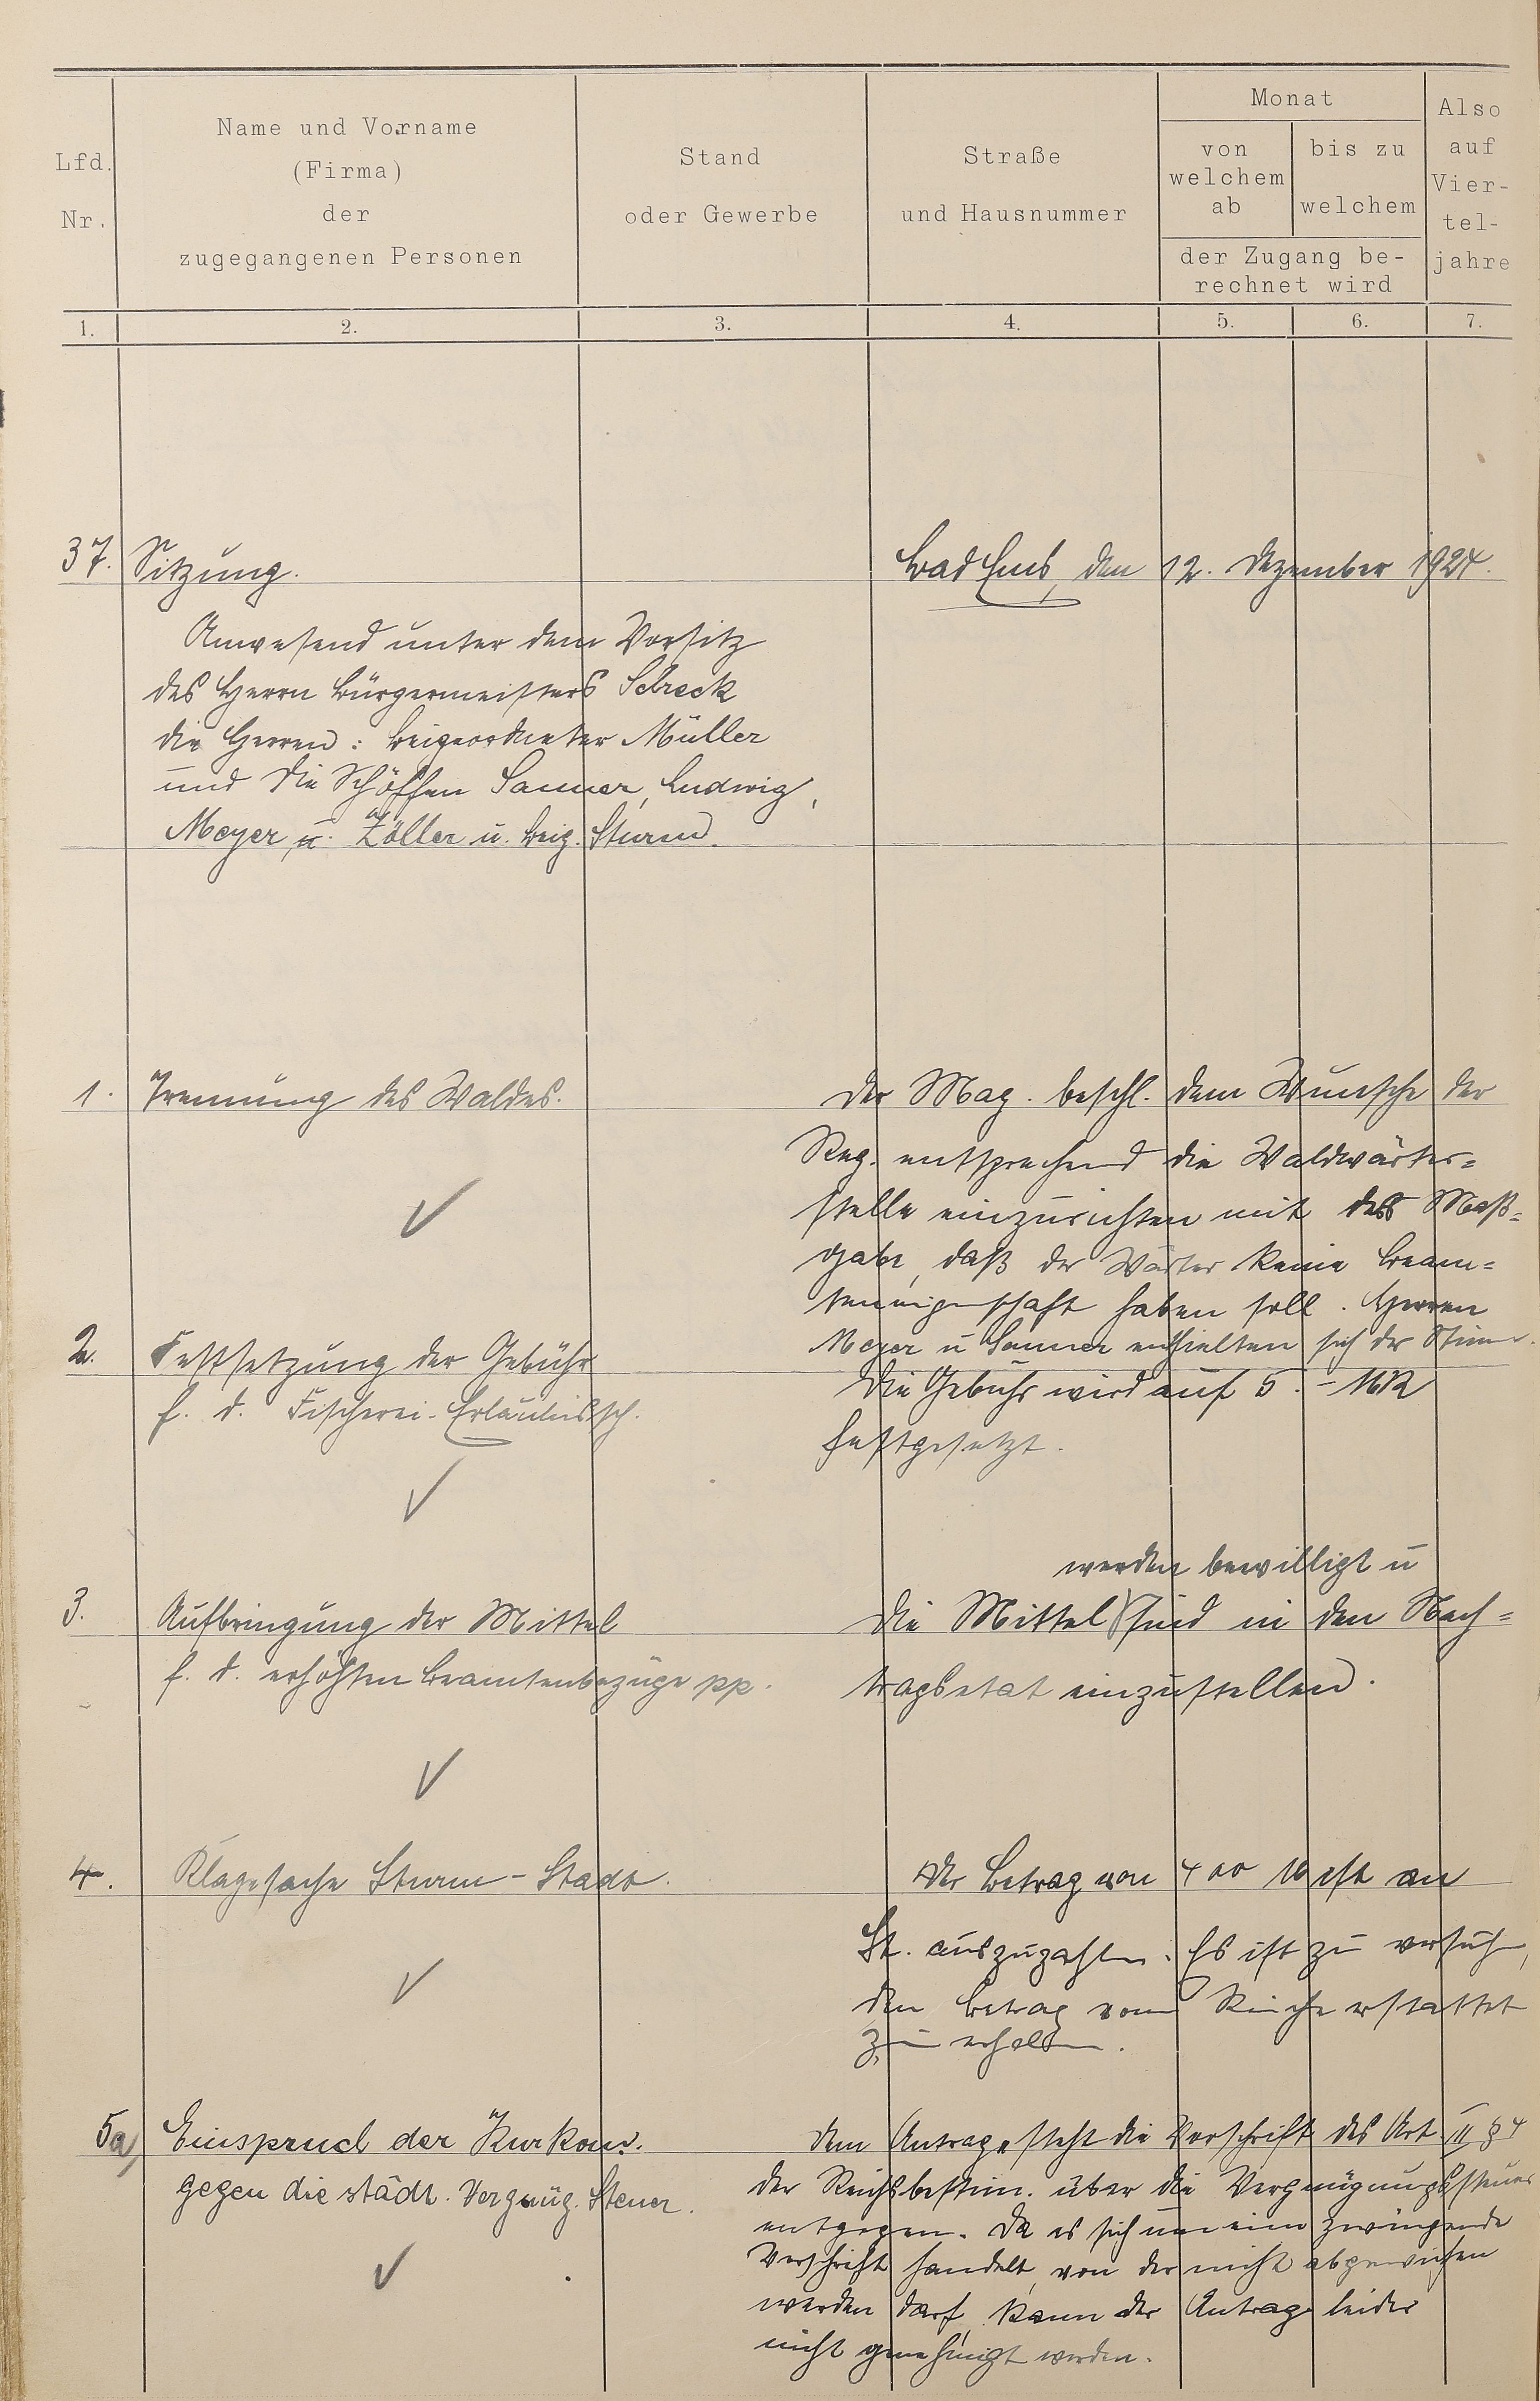 Lfd. Nr.
Name und Vorname
(Firma)
der
zugegangenen Personen
Stand
oder Gewerbe
Straße
und Hausnummer
Monat
von welchem ab
bis zu welchem
der Zugang be-
rechnet wird
Also auf Vier-tel-jahre
1. 2. 3. 4. 5. 6. 7.
37. Sitzung. Bad Ems, den 12. Dezember 1924.
Anwesend unter dem Vorsitz
des Herrn Bürgermeisters Schreck
die Herren: Beigeordneter Müller
und die Schöffen Sanner, Ludwig,
Meyer u. Zöller u. Beig. Sturm.
1. Trennung des Waldes.
Der Mag. beschl. dem Wunsche der
Reg. entsprechend die Waldwärter=
stelle einzurichten mit der Maß=
gabe, daß der Wärter keine Beam=
teneigenschaft haben soll. Herren
Meyer u Sanner enthielten sich der Stimme.
2. Festsetzung der Gebühr
f. d. Fischerei-Erlaubnissch.
Die Gebühr wird auf 5.- MR
festgesetzt.
3. Aufbringung der Mittel
f. d. erhöhten Beamtenbezüge pp.
werden bewilligt u
Die Mittel sind in den Nach=
tragsetat einzustellen.
4. Klagesache Sturm - Stadt.
Der Betrag von 400 M ist an
St. auszuzahlen. Es ist zu versuchen,
den Betrag vom Reiche erstattet
zu erhalten.
5a) Einspruch der Kurkom.
gegen die städt. Vergnüg. Steuer.
Dem Antrage steht die Vorschrift des Art. II § 4
der Reichsbestim. über die Vergnügungssteuer
entgegen. Da es sich um eine zwingende
Vorschrift handelt, von der nicht abgewichen
werden darf, kann der Antrag leider
nicht genehmigt werden.